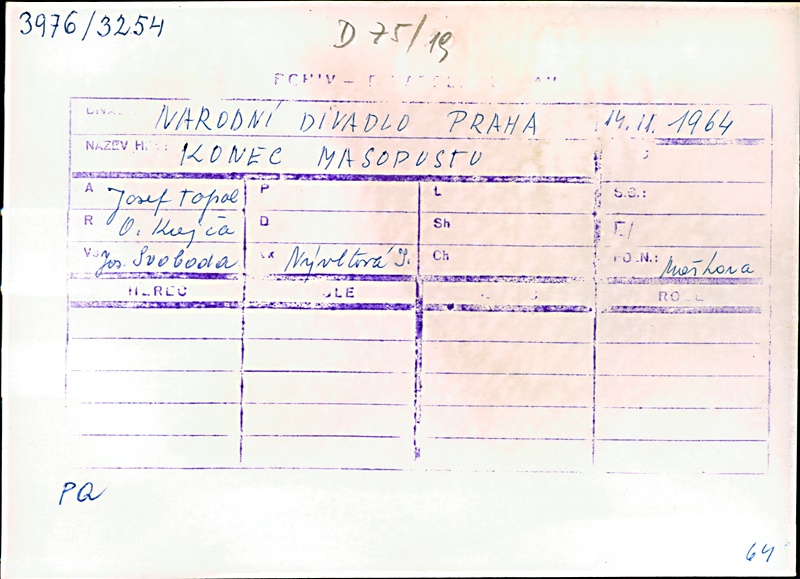 3976/3254
D 75/19
NÁRODNÍ DIVADLO PRAHA 14.11. 1964
NÁZEV H. KONEC MASOPUSTU
A Josef Topol P L S.G.:
R O. Krejča D Sh F./
Jos. Svoboda Nývltová Ch POZN.:
HEREC ROLE
PQ
64